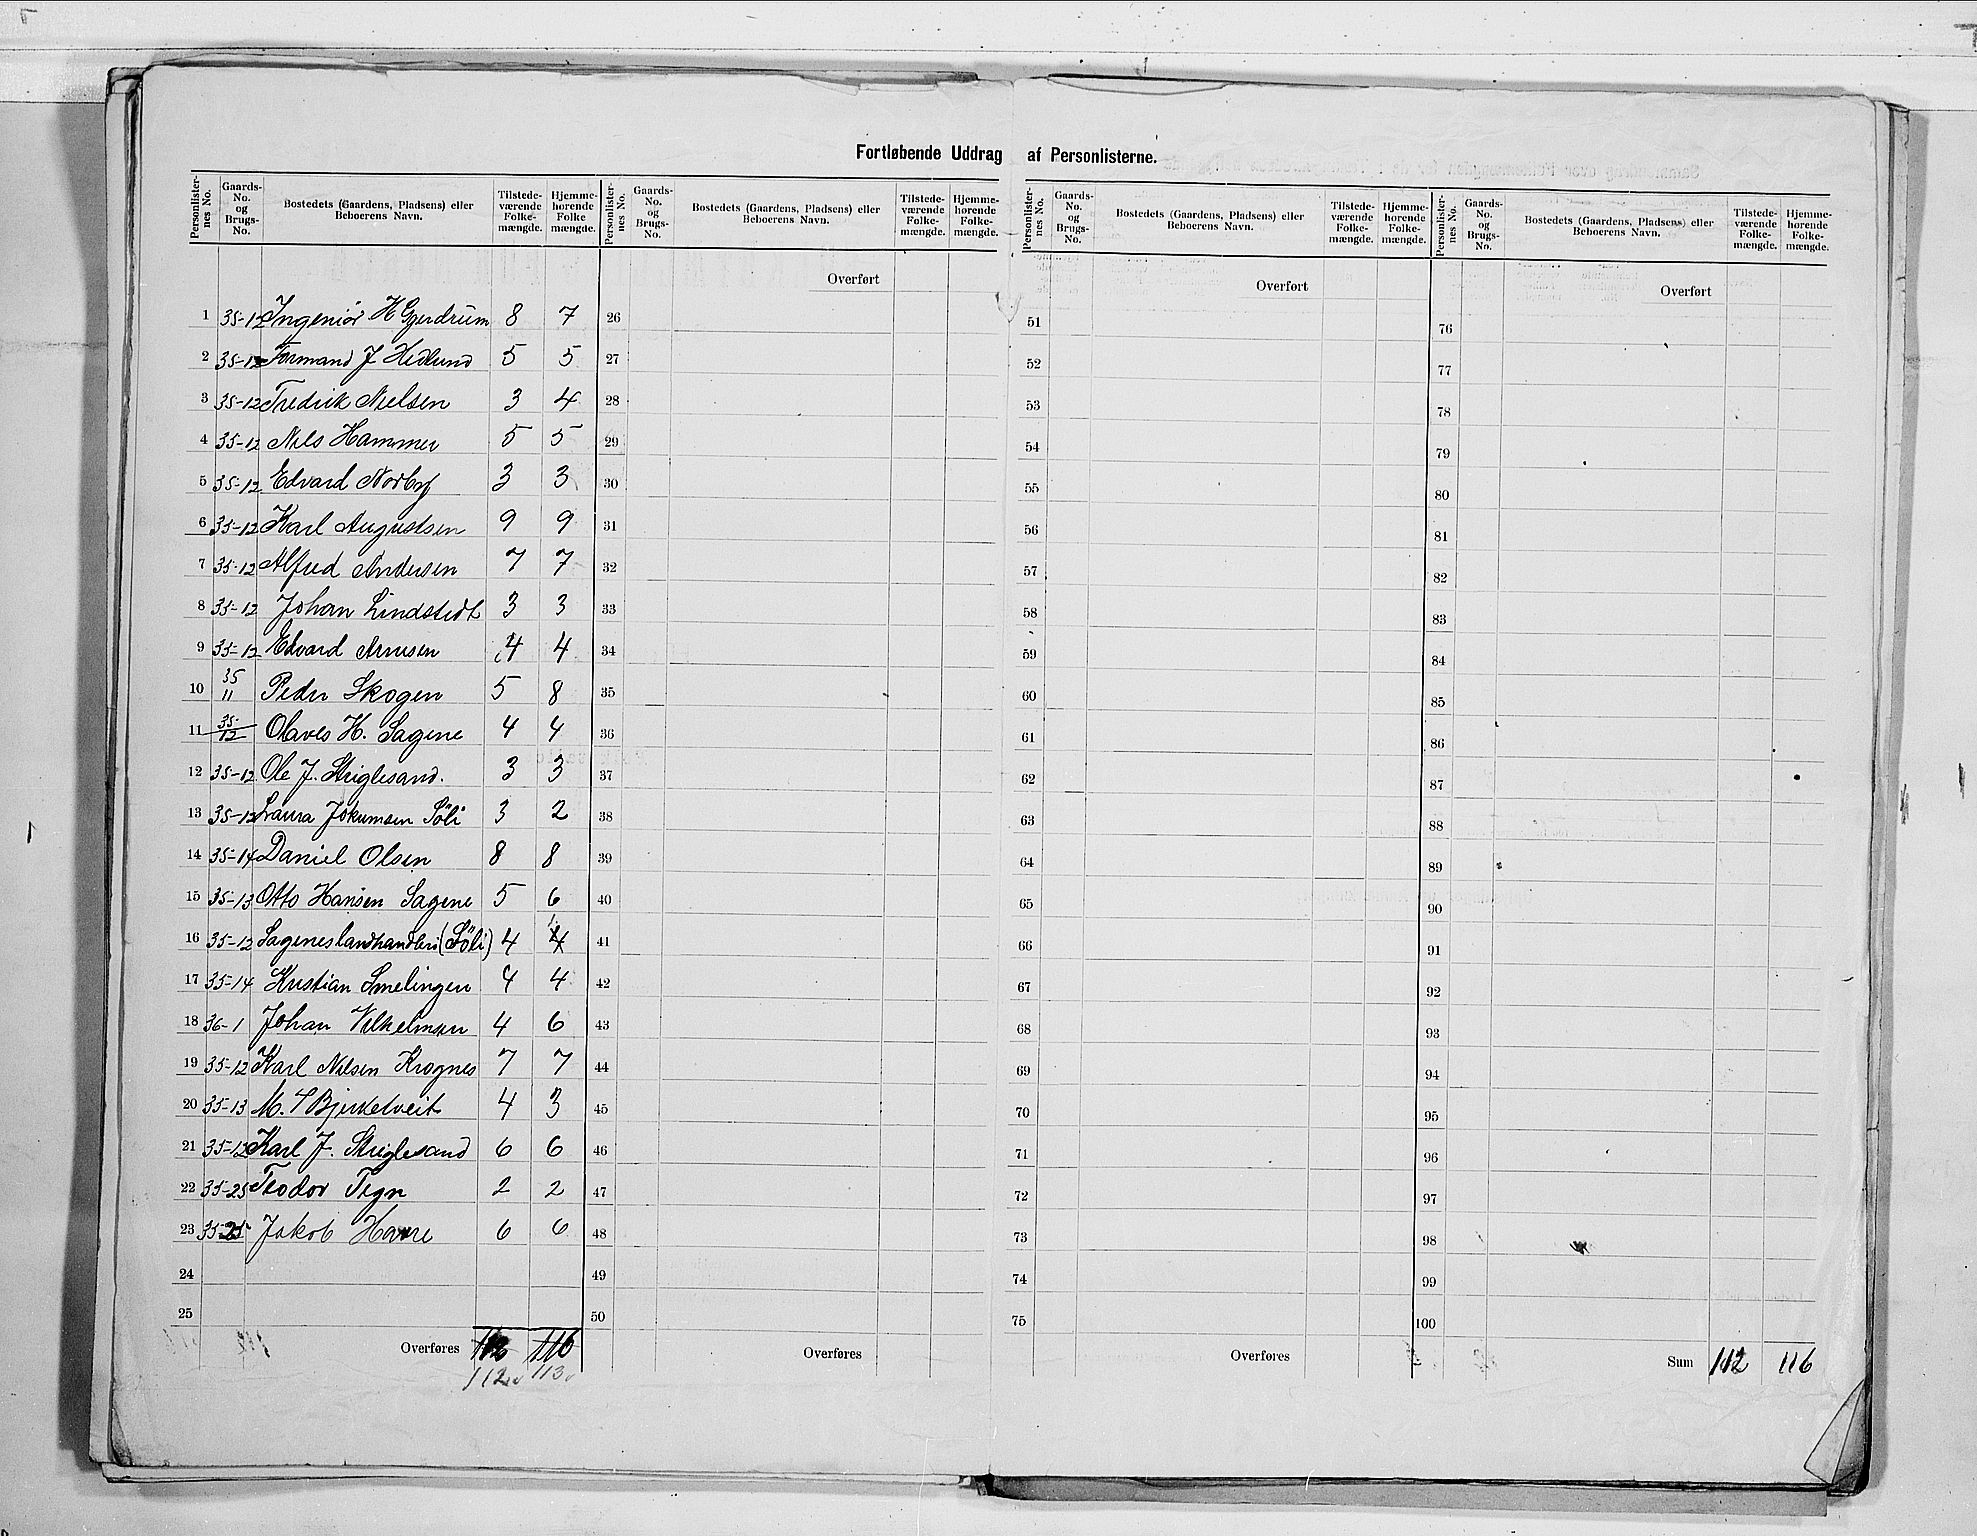 Fortløbende Uddrag af Personlisterne.
Personlisternes No. Gaards-No. og Brugs-No. Bostedets (Gaardens, Pladsens) eller Beboerens Navn. Tilstedeværende Folkemængde. Hjemmehørende Folkemængde.
Personlisternes No. Gaards-No. og Brugs-No. Bostedets (Gaardens, Pladsens) eller Beboerens Navn. Tilstedeværende Folkemængde. Hjemmehørende Folkemængde.
Personlisternes No. Gaards-No. og Brugs-No. Bostedets (Gaardens, Pladsens) eller Beboerens Navn. Tilstedeværende Folkemængde. Hjemmehørende Folkemængde.
Personlisternes No. Gaards-No. og Brugs-No. Bostedets (Gaardens, Pladsens) eller Beboerens Navn. Tilstedeværende Folkemængde. Hjemmehørende Folkemængde.
Overført Overført Overført
1 35-12 Ingeniör H Gjerdrum 8 7 26 51 76
2 35-12 Formand J Hedlund 5 5 27 52 77
3 35-12 Fredrik Nielsen 3 4 28 53 78
4 35-12 Nils Hammer 5 5 29 54 79
5 35-12 Edvard Norby 3 3 30 55 80
6 35-12 Karl Augustsen 9 9 31 56 81
7 35-12 Alfred Andersen 7 7 32 57 82
8 35-12 Johan Lindstedt 3 3 33 58 83
9 35-12 Edvard Arnesen 4 4 34 59 84
10 35 11 Peder Skogen 5 8 35 60 85
11 35/12 Olaves H. Sagene 4 4 36 61 86
12 35-12 Ole J. Striglesand. 3 3 37 62 87
13 35-12 Laura Jokumsen Söli 3 2 38 63 88
14 35-14 Daniel Olsen 8 8 39 64 89
15 35-13 Otto Hansen Sagene 5 6 40 65 90
16 35-12 Sageneslandhandleri (Söli) 4 4 41 66 91
17 35-14 Kristian Smelingen 4 4 42 67 92
18 36-1 Johan Vilhelmsen 4 6 43 68 93
19 35-12 Karl Nilsen Krognes 7 7 44 69 94
20 35-13 M. T Bjerketveit 4 3 45 70 95
21 35-12 Karl J. Striglesand 6 6 46 71 96
22 35-25 Teodor Tegn 2 2 47 72 97
23 35-25 Jakob Havre 6 6 48 73 98
24 49 74 99
25 50 75 100
Overføres 116 Overføres Overføres Sum 112 116
112 113